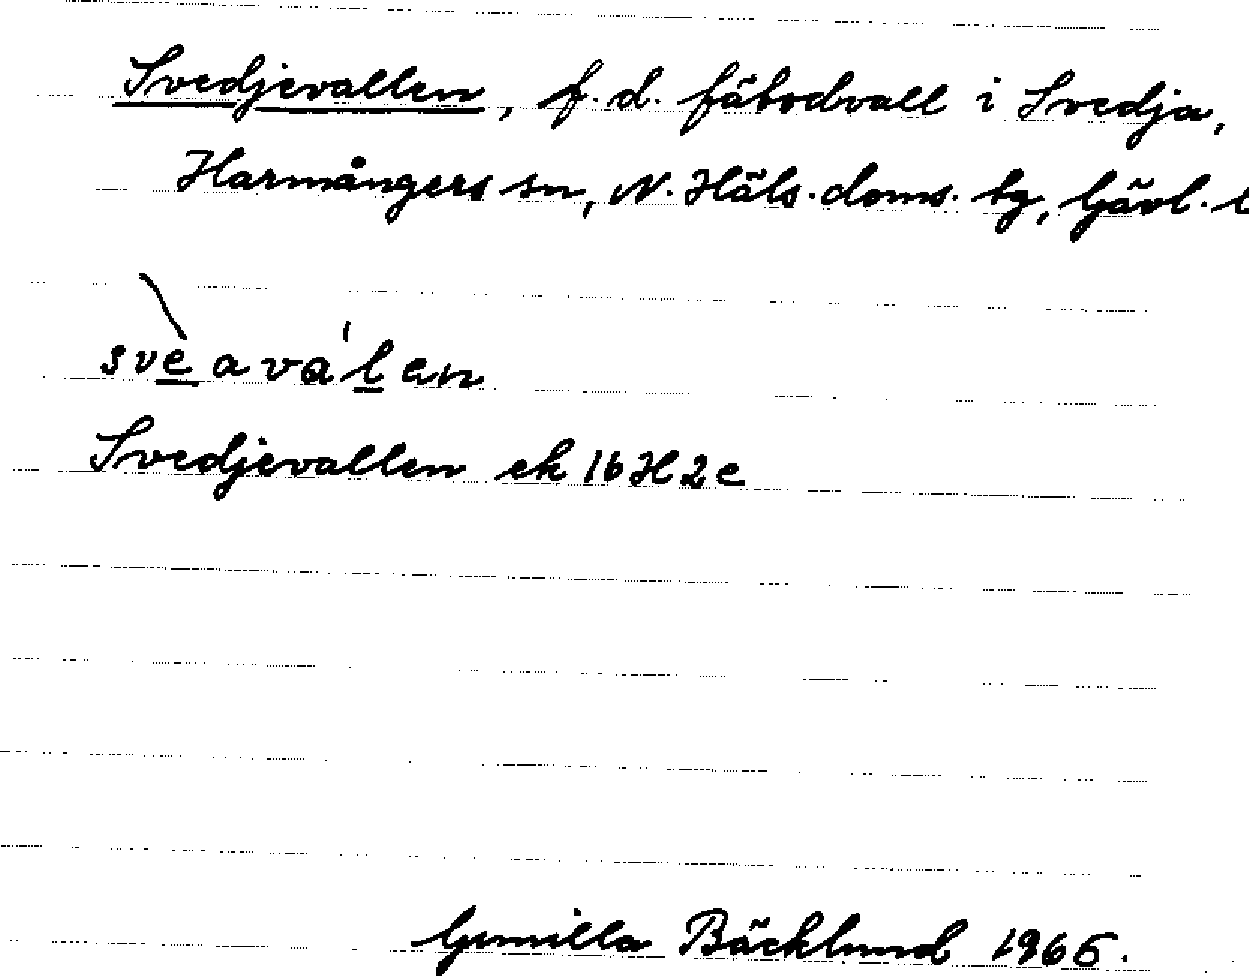 Svedjevallen, f. d. fäbodvall i Svedja,
Harmångers sn, N. Häls. doms. bg, Gävl. l
svèaválen
Svedjevallen ek 16H2e
Gunilla Bäcklund 1965.